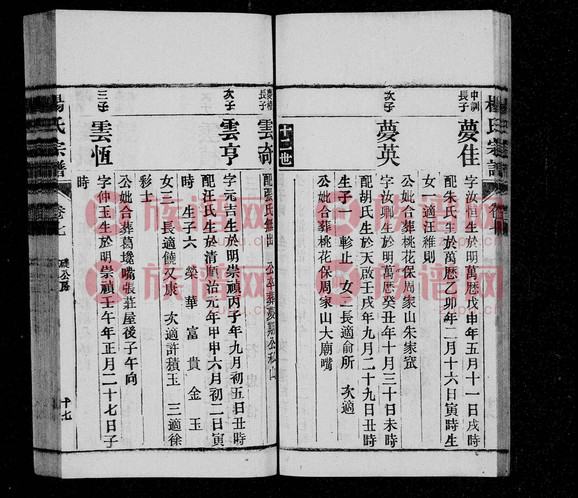 楊氏宗譜
中訓
長子
夢佳
字汝恒生於明萬曆戊申年五月十一日戌時
配朱氏生於萬曆乙卯年二月十六日寅時生
女一適汪維則
公妣合葬桃花保周家山朱家窊
次子
夢英
字汝卿生於明萬曆癸丑年十月三十日未時
配胡氏生於天啟壬戌年九月二十九日戌時
生子一軫止 女二長適俞所 次適
公妣合葬桃花保周家山大廟嘴
十二世
長子
雲龍
配張氏無出
次子
雲亨
字元吉生於明崇禎丙子年九月初五日丑時
配汪氏生於清順治元年甲申六月初二日寅
時 生子六 榮 華 富 貴 金 玉
女三 長適饒又康 次適許積玉 三適徐
彩士
公妣合葬葛壋嘴張莊屋後子午向
三子
雲恆
字仲玉生於明崇禎壬午年正月二十七日子
時
楊氏宗譜
卷七
十七
族譜網